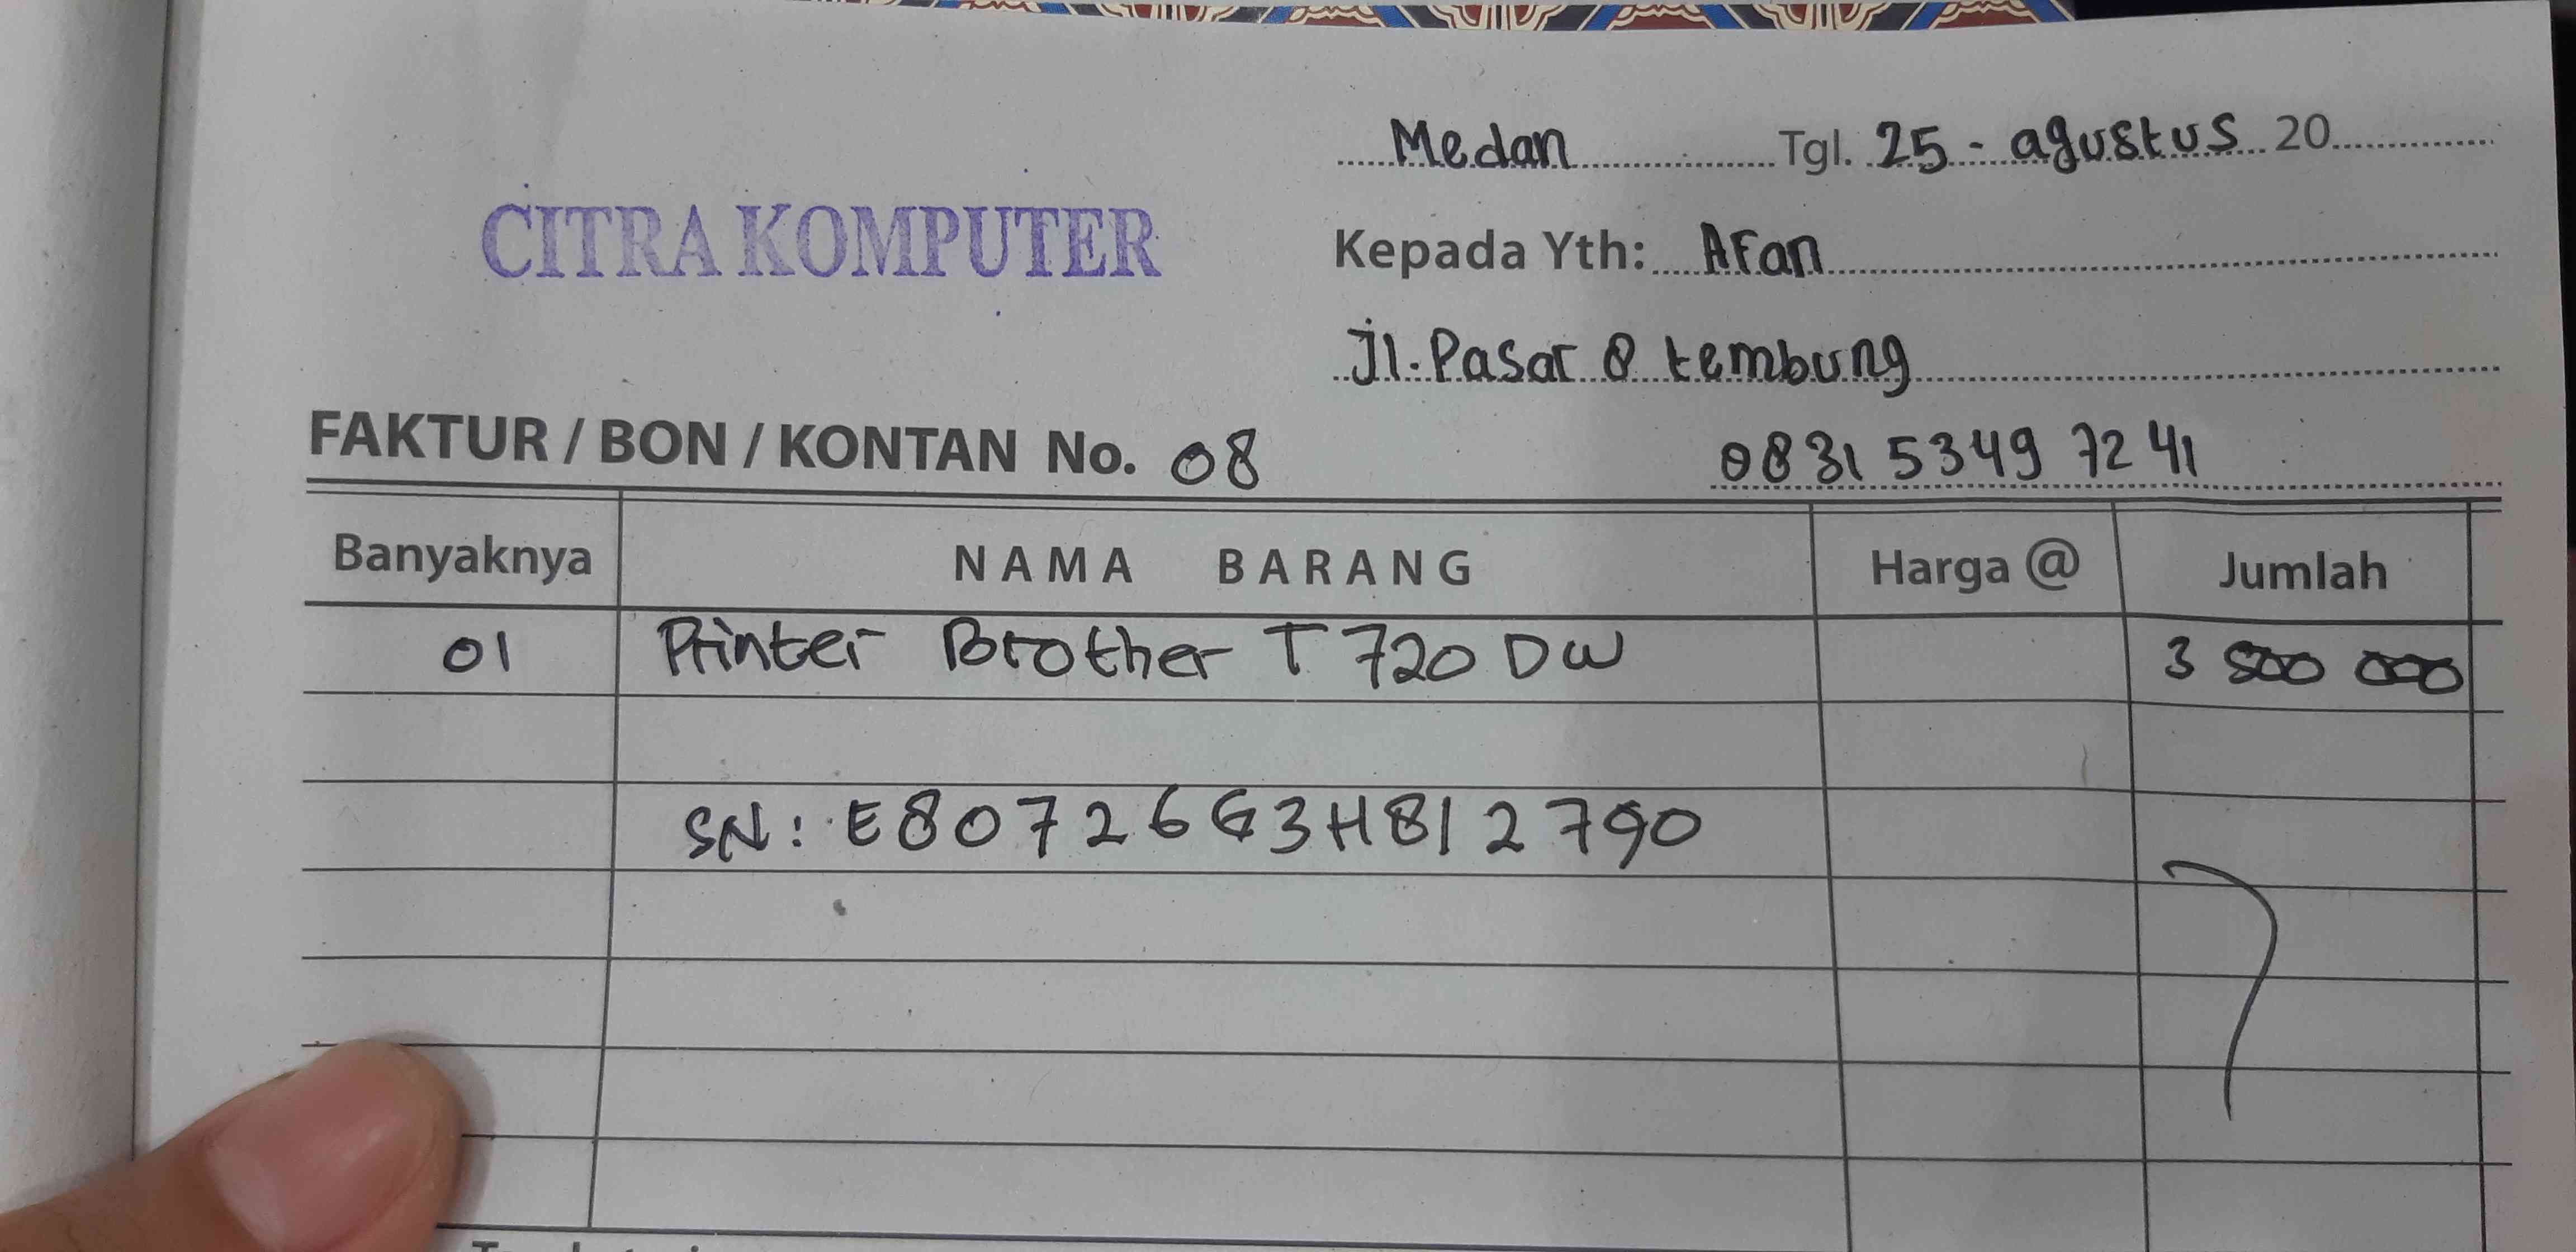 Medan Tgl. 25 - agustus 20
CITRA KOMPUTER
Kepada Yth: Afan
Jl. Pasar 8 tembung
FAKTUR / BON / KONTAN No. 08
0831 5349 7241
Banyaknya NAMA BARANG Harga @ Jumlah
01 Printer Brother T 720 DW 3 500 000
SN: E80726G3H812790